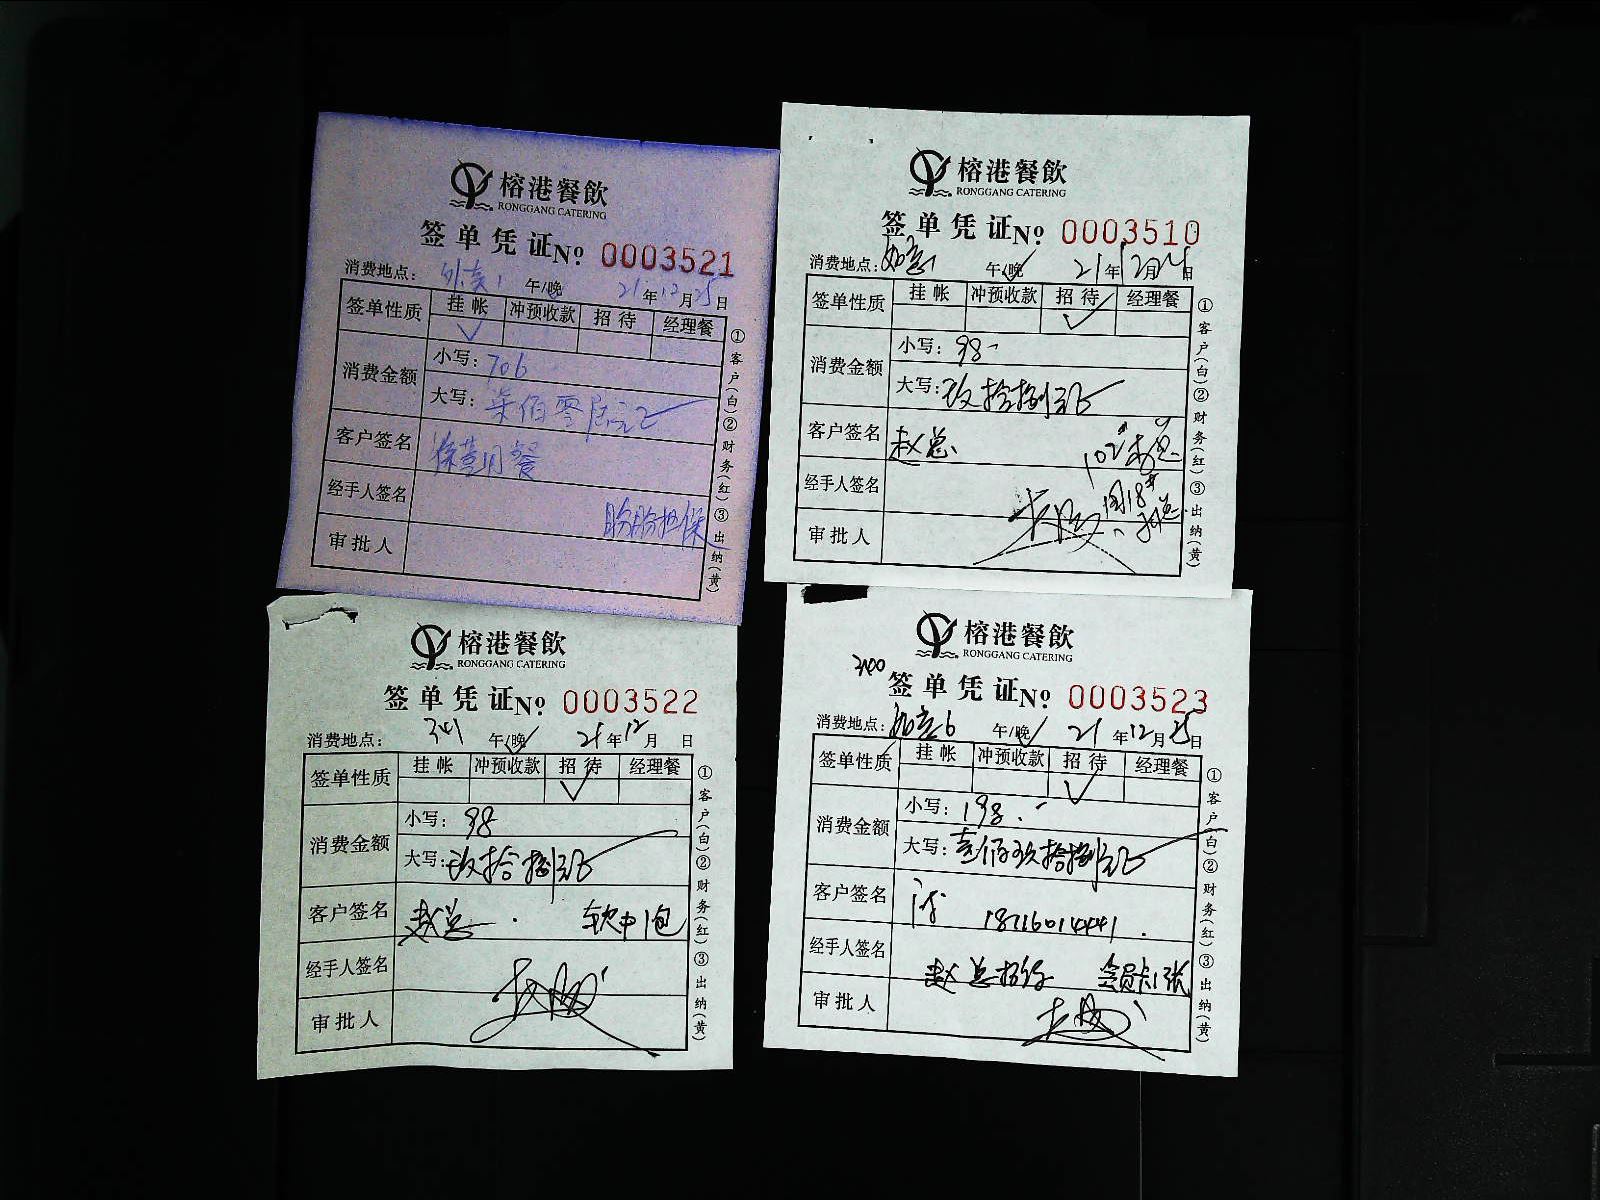 榕港餐飲
RONGGANG CATERING
签单凭证№ 0003521
消费地点： 午/晚 21年12月25日
签单性质 挂帐 冲预收款 招待 经理餐
消费金额 小写：706
大写：柒佰零陆元正
客户签名
经手人签名 盼盼担保
审批人
①客户（白）②财务（红）③出纳（黄）
榕港餐飲
RONGGANG CATERING
签单凭证№ 0003510
消费地点：如意1 午/晚 21年12月 日
签单性质 挂帐 冲预收款 招待 经理餐
消费金额 小写：98-
大写：玖拾捌元正
客户签名 赵总
经手人签名
审批人
①客户（白）②财务（红）③出纳（黄）
榕港餐飲
RONGGANG CATERING
签单凭证№ 0003522
消费地点： 午/晚 21年12月 日
签单性质 挂帐 冲预收款 招待 经理餐
消费金额 小写：98
大写：玖拾捌元正
客户签名 赵总 软中1包
经手人签名
审批人
①客户（白）②财务（红）③出纳（黄）
榕港餐飲
RONGGANG CATERING
签单凭证№ 0003523
消费地点：如意6 午/晚 21年12月25日
签单性质 挂帐 冲预收款 招待 经理餐
消费金额 小写：198.-
大写：壹佰玖拾捌元正
客户签名 18716014441
经手人签名 赵总招待 会员卡1张
审批人
①客户（白）②财务（红）③出纳（黄）